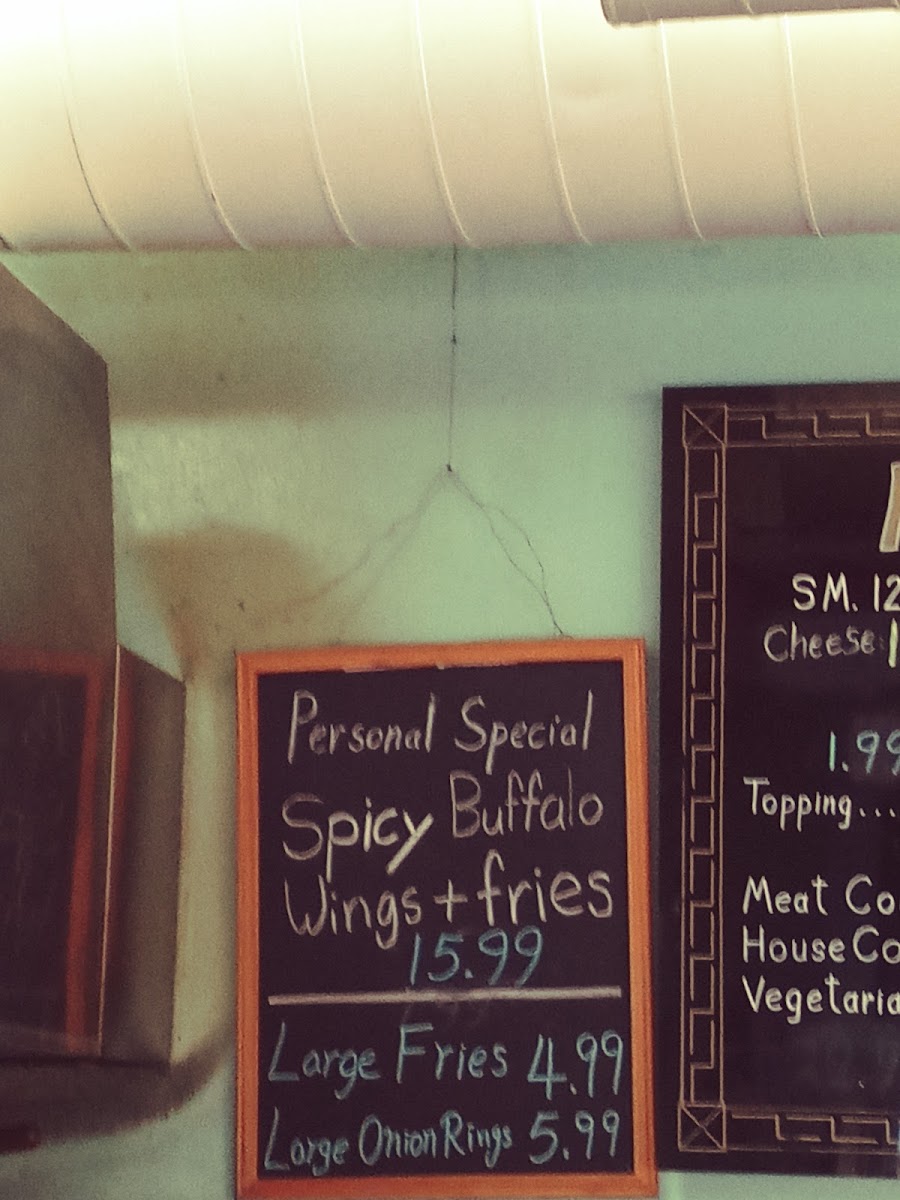 Personal Special
Spicy Buffalo
Wings + fries
15.99
Large Fries 4.99
Large Onion Rings 5.99
SM. 12
Cheese
1.99
Topping...
Meat Co
House Co
Vegetaria